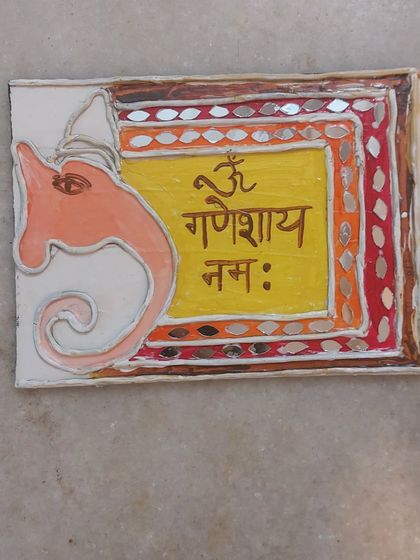 ॐ
गणेशाय
नम: